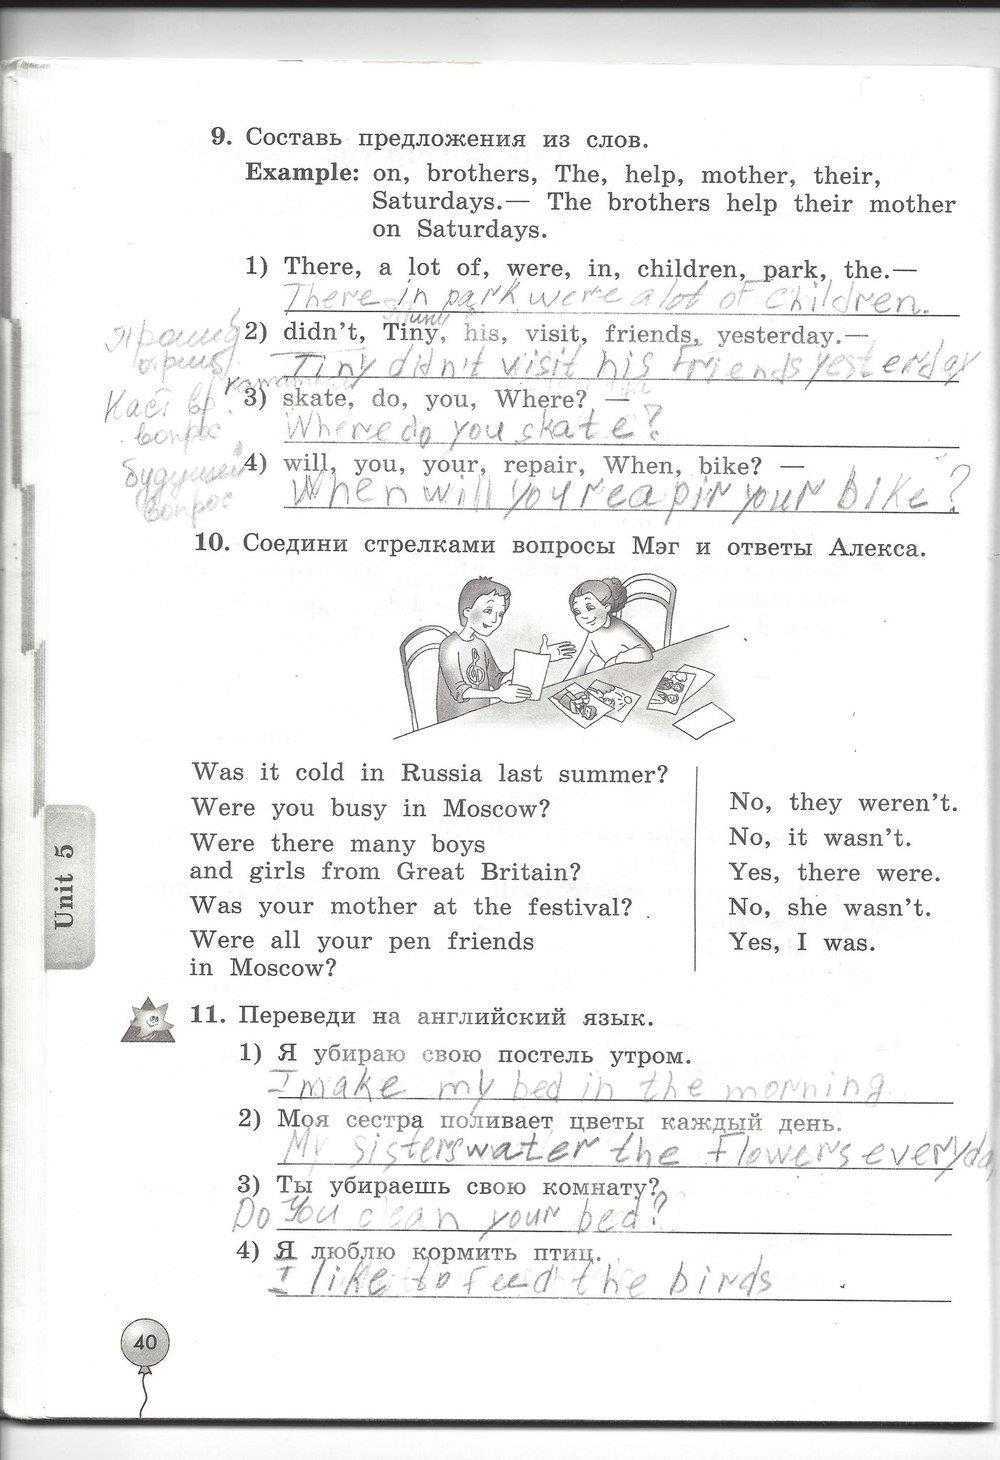 9. Составь предложения из слов.
Example: on, brothers, The, help, mother, their,
Saturdays.— The brothers help their mother
on Saturdays.
1) There, a lot of, were, in, children, park, the.—
There in park were a lot of children.
2) didn't, Tiny, his, visit, friends, yesterday.—
Tiny didn't visit his friends yesterday
3) skate, do, you, Where? —
Where do you skate?
вопрос
4) will, you, your, repair, When, bike? —
When will you reapir your bike?
вопрос
10. Соедини стрелками вопросы Мэг и ответы Алекса.
Was it cold in Russia last summer?
Were you busy in Moscow?
Were there many boys
and girls from Great Britain?
Was your mother at the festival?
Were all your pen friends
in Moscow?
No, they weren't.
No, it wasn't.
Yes, there were.
No, she wasn't.
Yes, I was.
Unit 5
11. Переведи на английский язык.
1) Я убираю свою постель утром.
I make my bed in the morning
2) Моя сестра поливает цветы каждый день.
My sisters water the flowers everyda
3) Ты убираешь свою комнату?
Do you clean your bed?
4) Я люблю кормить птиц.
I like to feed the birds
40